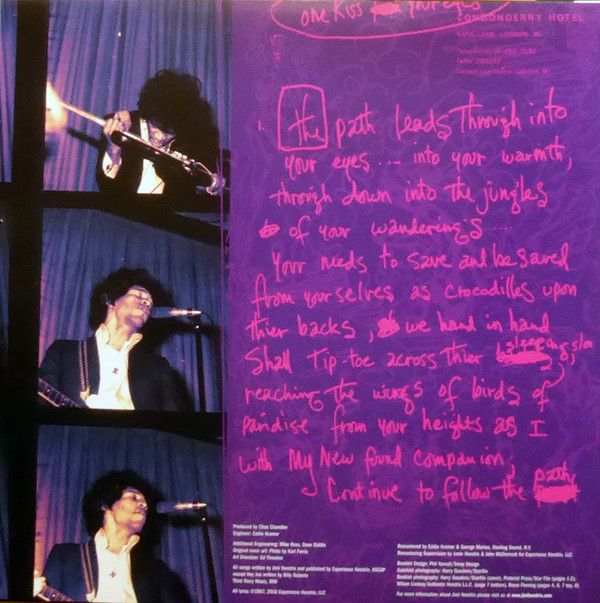 one Kiss your eyes
LONDONDERRY HOTEL
PARK LANE, LONDON, W1
1. the path leads through into
your eyes .... into your warmth,
through down into the jungles
of your wandering's ....
Your needs to save and be saved
from your selves as crocodilles upon
thier backs, we hand in hand
Shall Tip-toe across thier sleeping
reaching the wings of birds of
paridise from your heights as I
with My New found companion,
Continue to follow the path
Produced by Chas Chandler
Engineer: Eddie Kramer
Additional Engineering: Mike Ross, Dave Siddle
Original cover art: Photo by Karl Ferris
Art Direction: Ed Thrasher
All songs written by Jimi Hendrix and published by Experience Hendrix, ASCAP
except Hey Joe written by Billy Roberts
Third Story Music, BMI
All lyrics ©1967, 2010 Experience Hendrix, LLC
Remastered by Eddie Kramer & George Marino, Sterling Sound, N.Y.
Remastering Supervision by Janie Hendrix & John McDermott for Experience Hendrix, LLC
Booklet Design: Phil Yarnall/Smay Design
Gatefold photography: Harry Goodwin/Starfile
Booklet photography: Harry Goodwin/Starfile (cover), Pictorial Press/Star File (pages 1-2),
For more information about Jimi Hendrix please visit us at www.jimihendrix.com